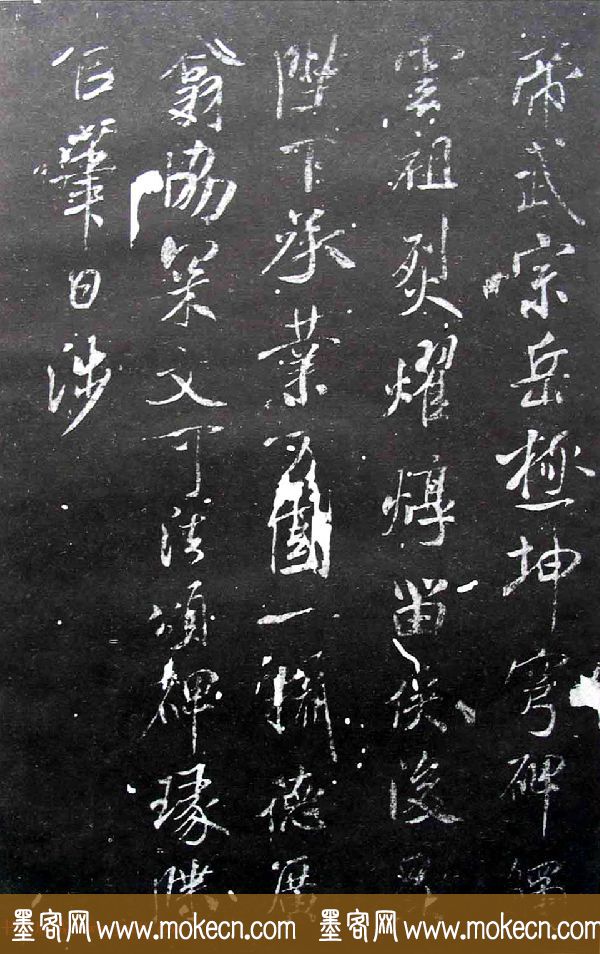 帝武宗岳極坤穹碑
雲祖烈耀焞留侯後
陛下承業萬國一
翁協策文可法頌碑琢
臣肇日涉
墨客网 www.mokecn.com 墨客网 www.mokecn.com